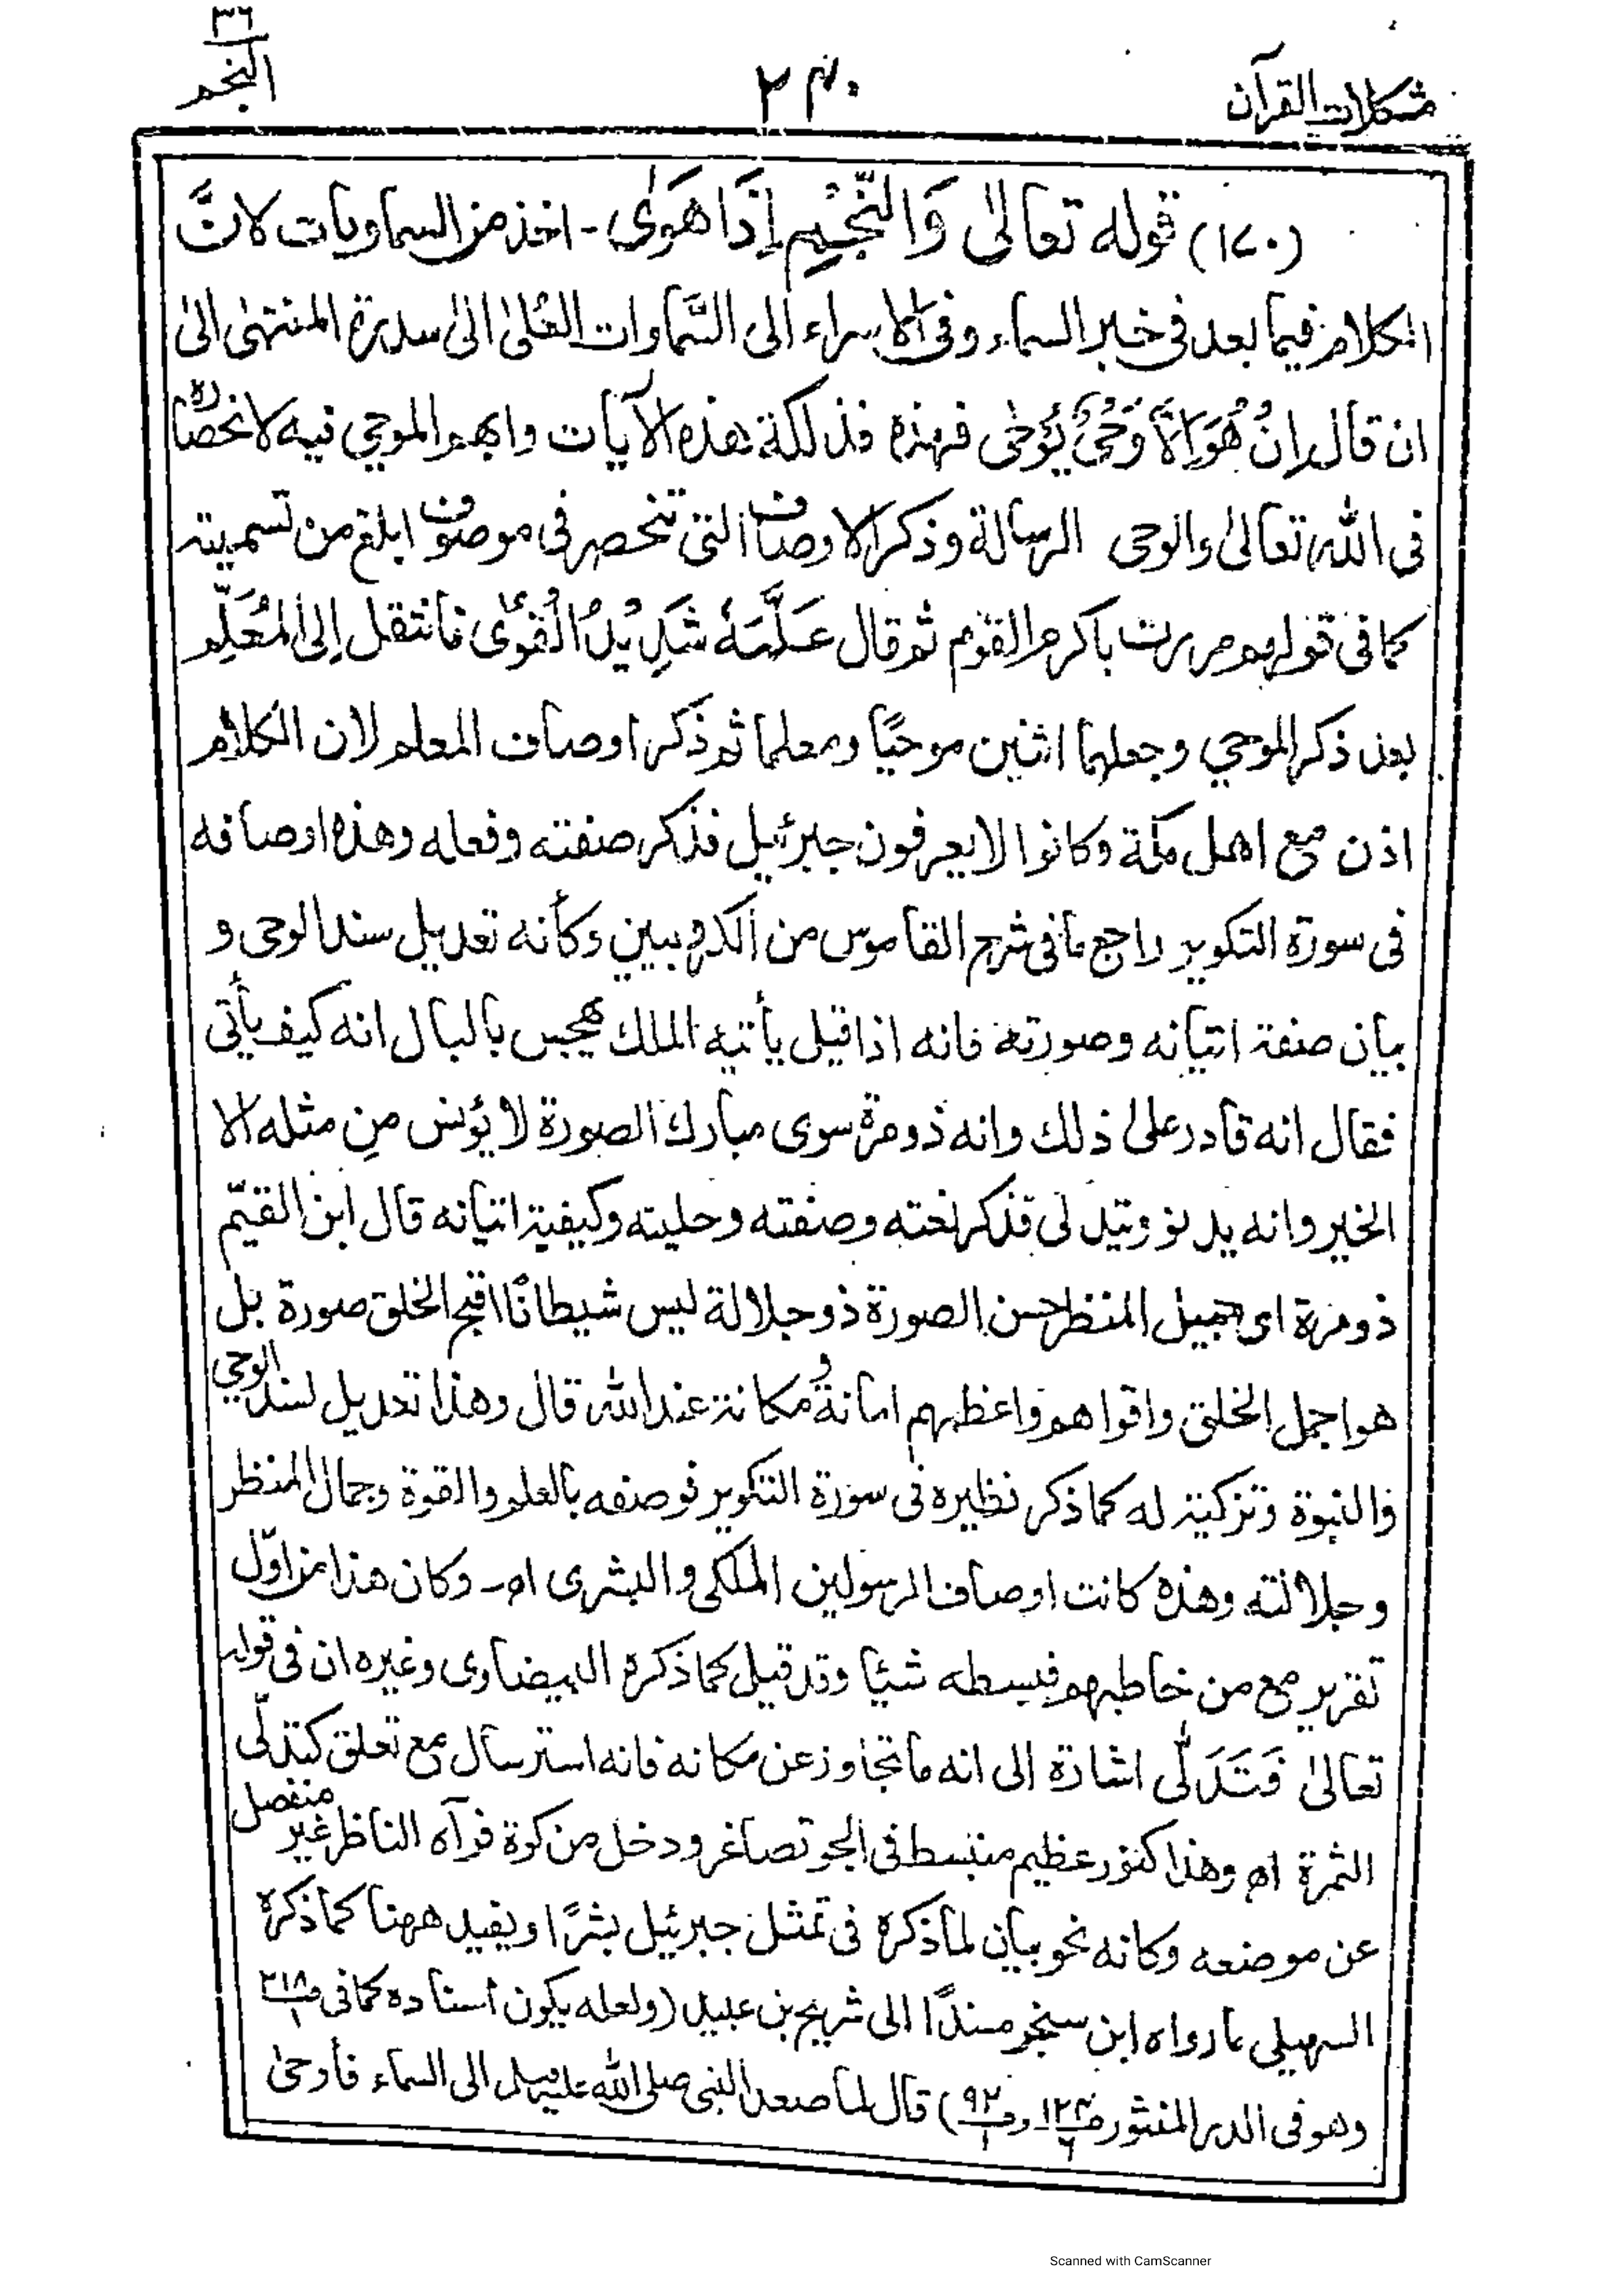 مشكلات القرآن
٢٤٠
٣٦
النجم
(١٧٠) قوله تعالىٰ وَالنَّجْمِ إِذَا هَوٰى - اخذ من السماويات لانَّ
الكلام فيما بعد فى خبر السماء وفى الاسراء الى السَّماوات العُلىٰ الىٰ سدرة المنتهىٰ الىٰ
ان قال إِنْ هُوَ إِلَّا وَحْىٌ يُّوحٰى فهذه فذلكة هذه الآيات وابهم الموحي فيه لانحصاره
فى الله تعالىٰ والوحى الرسالة وذكر الاوصاف التى تنحصر فى موصوف ابلغ من تسميته
كما فى قولهم مررت باكرم القوم ثم قال عَلَّمَهٗ شَدِيْدُ الْقُوٰى فانتقل إلى المُعَلِّم
بعد ذكر الموحي وجعلهما اثنين موحيًا ومعلما ثم ذكر اوصاف المعلم لان الكلام
اذن مع اهل مكة وكانوا لا يعرفون جبرئيل فذكر صفته وفعله وهذه اوصافه
فى سورة التكوير راجع ما فى شرح القاموس من الكروبيين وكأنه تعديل سند الوحى و
بيان صفة اتيانه وصورته فانه اذا قيل يأتيه الملك يهجس بالبال انه كيف يأتى
فقال انه قادر علىٰ ذلك وانه ذو مرة سوى مبارك الصورة لا يؤنس من مثله الا
الخير وانه يدنو ويتدلى فذكر نعته وصفته وحليته وكيفية اتيانه قال ابن القيّم
ذو مرة اى جميل المنظر حسن الصورة ذو جلالة ليس شيطانًا اقبح الخلق صورة بل
هو اجمل الخلق واقواهم واعظمهم امانة ومكانة عند الله قال وهذا تعديل لسند الوحي
والنبوة وتزكية له كما ذكر نظيره فى سورة التكوير فوصفه بالعلم والقوة وجمال المنظر
وجلالته وهذه كانت اوصاف الرسولين الملكى والبشرى اه- وكان هذا من اوّل
تقرير مع من خاطبهم فبسطه شيئا وقد قيل كما ذكره البيضاوى وغيره ان فى قوله
تعالىٰ فَتَدَلّٰى اشارة الى انه ما تجاوز عن مكانه فانه استرسال مع تعلق كتدلّى
الثمرة اه وهذا كنور عظيم منبسط فى الجو تصاغر ودخل من كوة فرآه الناظر غير منفصل
عن موضعه وكانه نحو بيان لما ذكره فى تمثل جبرئيل بشرًا ويفيد ههنا كما ذكره
السهيلى ما رواه ابن سنجر مسندًا الى شريح بن عبيد (ولعله يكون اسناده كما فى ص ٣١٨/١
وهو فى الدر المنثور ص ١٢٣/٦ وص ٩٢/١) قال لما صعد النبى صلى الله عليه وسلم الى السماء فأوحىٰ
Scanned with CamScanner